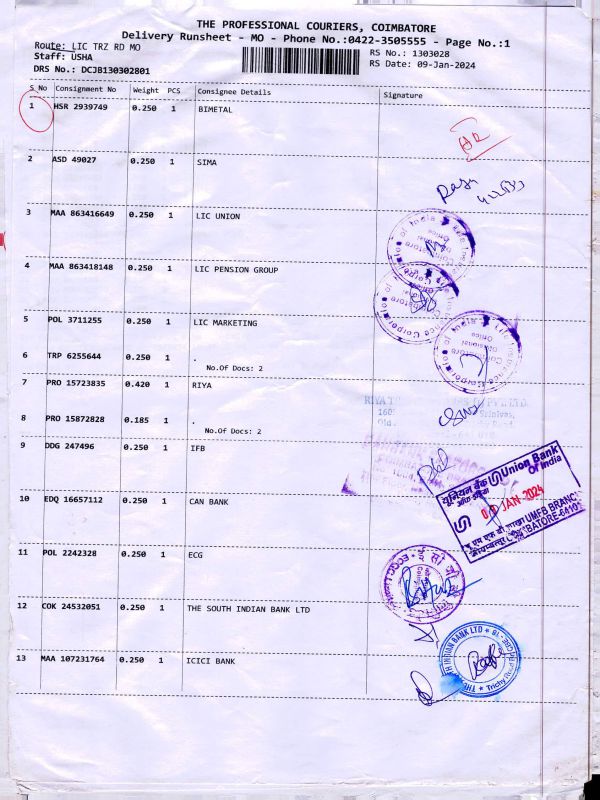 THE PROFESSIONAL COURIERS, COIMBATORE
Delivery Runsheet - MO - Phone No.:0422-3505555 - Page No.:1
Route: LIC TRZ RD MO
RS No.: 1303028
Staff: USHA
RS Date: 09-Jan-2024
DRS No.: DCJB130302801
S No Consignment No Weight PCS Consignee Details Signature
1 HSR 2939749 0.250 1 BIMETAL
2 ASD 49027 0.250 1 SIMA
3 MAA 863416649 0.250 1 LIC UNION
4 MAA 863418148 0.250 1 LIC PENSION GROUP
5 POL 3711255 0.250 1 LIC MARKETING
6 TRP 6255644 0.250 1 .
No.Of Docs: 2
7 PRO 15723835 0.420 1 RIYA
8 PRO 15872828 0.185 1 .
No.Of Docs: 2
9 DDG 247496 0.250 1 IFB
यूनियन बैंक Union Bank
Of India
JAN 2024
UMFB BRANCH
10 EDQ 16657112 0.250 1 CAN BANK
11 POL 2242328 0.250 1 ECG
12 COK 24532051 0.250 1 THE SOUTH INDIAN BANK LTD
INDIAN BANK LTD
13 MAA 107231764 0.250 1 ICICI BANK